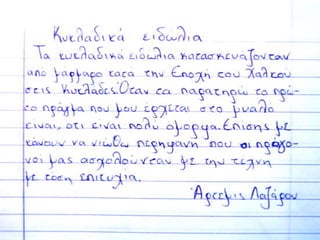 Κυκλαδικά ειδώλια
Τα κυκλαδικά ειδώλια κατασκευάζονταν
από μάρμαρο κατά την Εποχή του Χαλκού
στις Κυκλάδες. Όταν τα παρατηρώ το πρώ-
το πράγμα που μου έρχεται στο μυαλό
είναι, ότι είναι πολύ όμορφα. Επίσης με
κάνουν να νιώθω περήφανη που οι πρόγο-
νοί μας ασχολούνταν με την τέχνη
με τόση επιτυχία.
Άρτεμις Λαζάρου